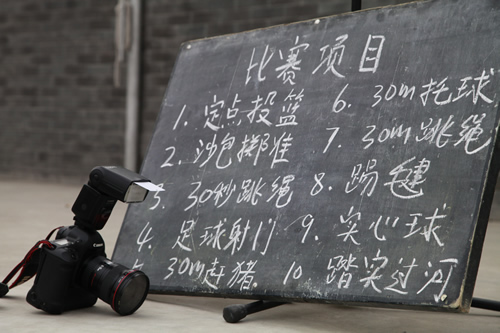 比赛项目
1. 定点投篮
2. 沙包掷准
3. 30秒跳绳
4. 足球射门
5. 30m赶猪
6. 30m托球
7. 30m跳绳
8. 踢毽
9. 实心球
10. 踏实过河
Canon